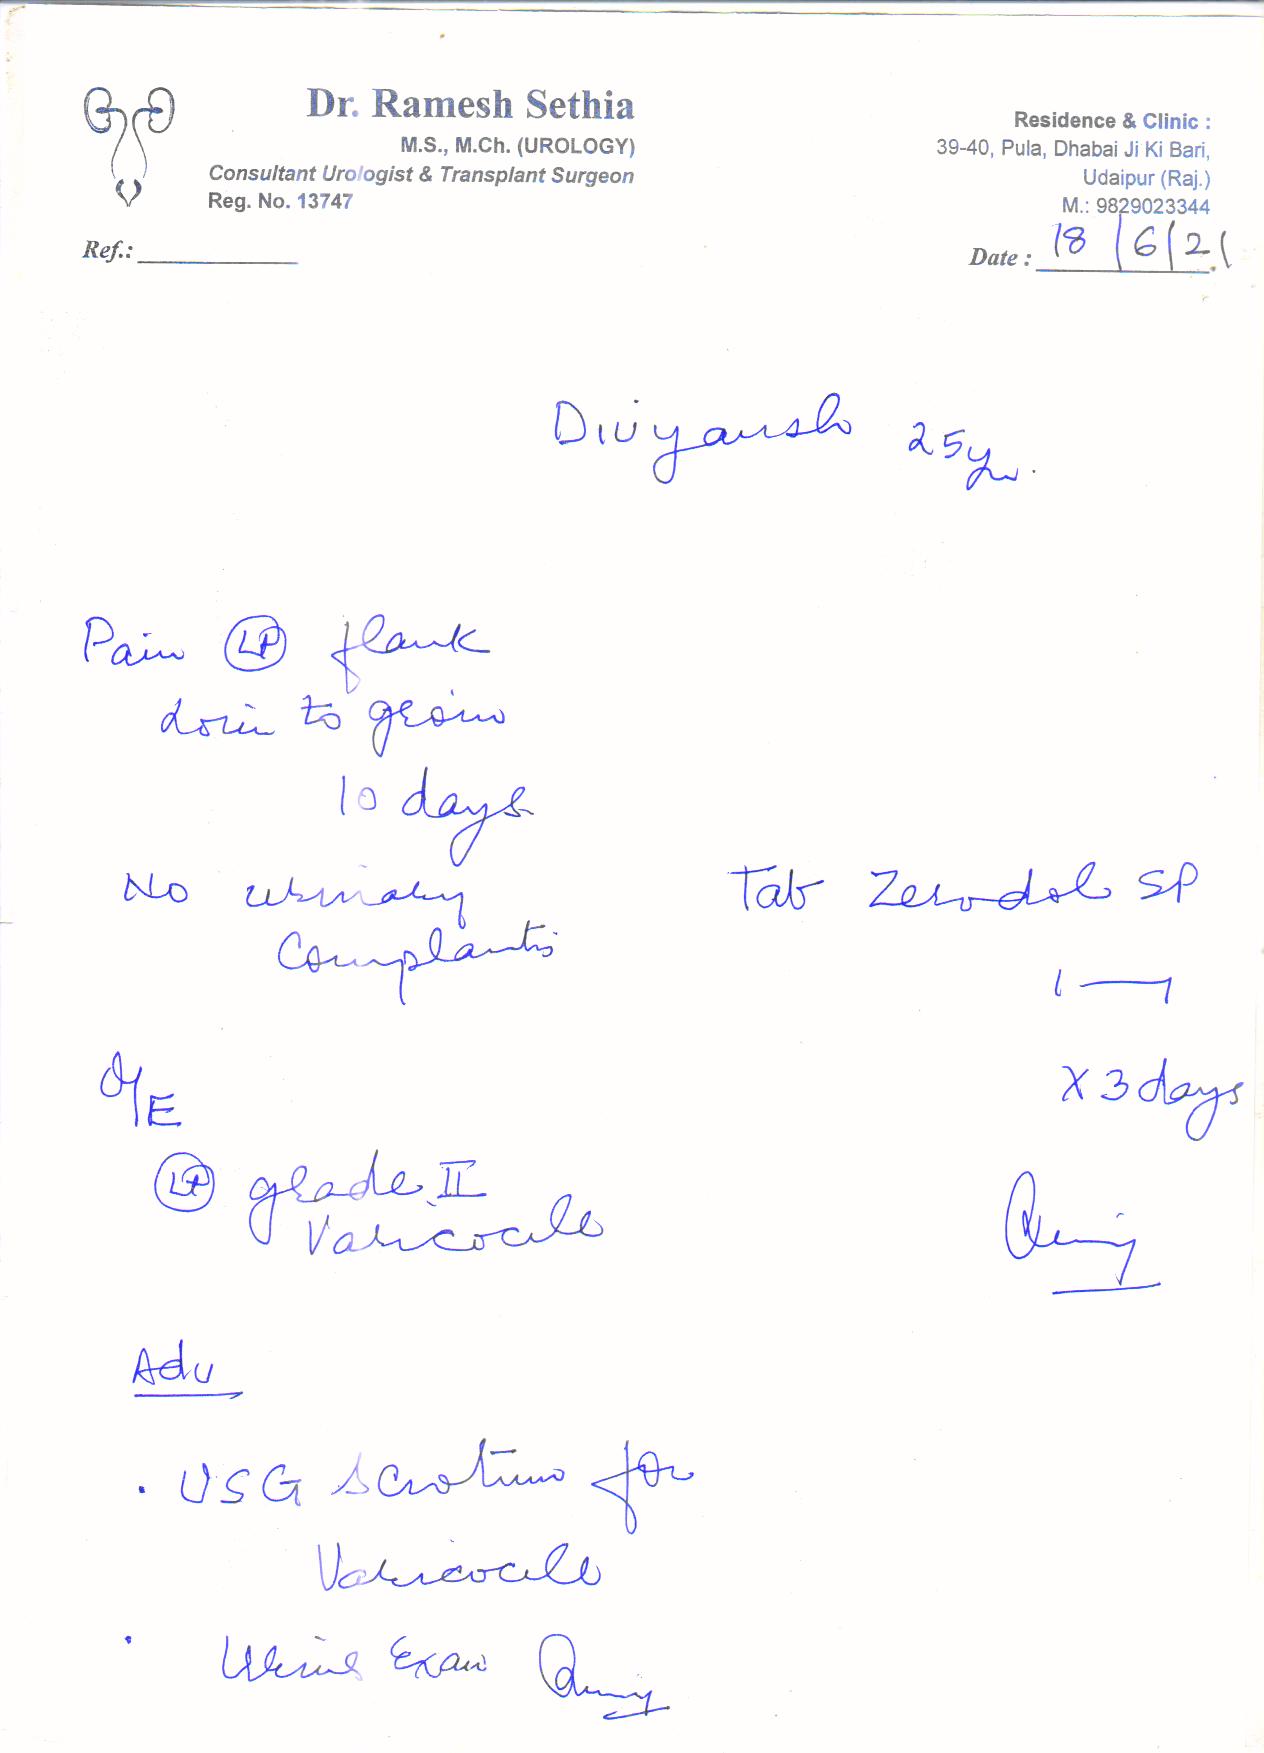 Dr. Ramesh Sethia
M.S., M.Ch. (UROLOGY)
Consultant Urologist & Transplant Surgeon
Reg. No. 13747
Ref.:
Residence & Clinic :
39-40, Pula, Dhabai Ji Ki Bari,
Udaipur (Raj.)
M.: 9829023344
Date : 18/6/21
Divyansh 25yr.
Pain Lt flank
down to groin
10 days
No urinary
Complants
O/E
Lt grade II
Varicocele
Adv
. USG Scrotum for
Varicocele
. Urine Exam
Tab Zerodol SP
1 — 1
X 3 days